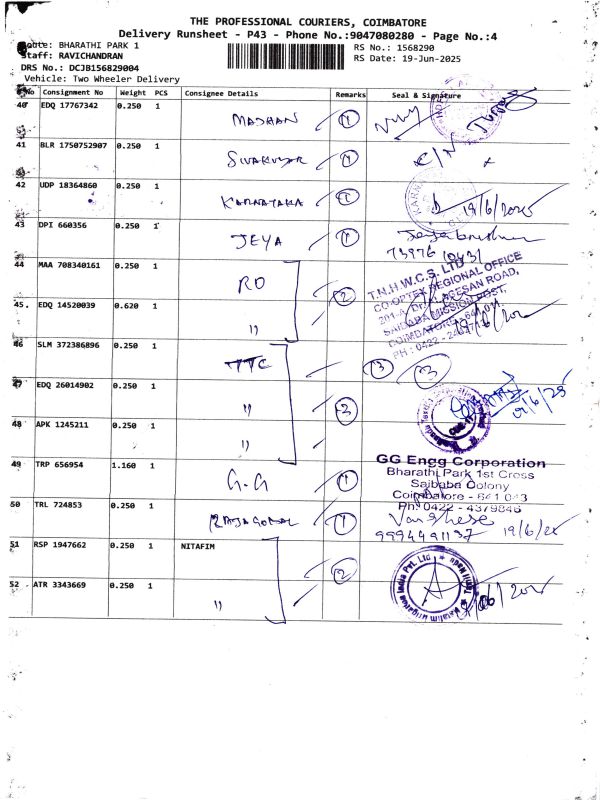 THE PROFESSIONAL COURIERS, COIMBATORE
Delivery Runsheet - P43 - Phone No.:9047080280 - Page No.:4
Route: BHARATHI PARK 1
Staff: RAVICHANDRAN
DRS No.: DCJB156829004
Vehicle: Two Wheeler Delivery
RS No.: 1568290
RS Date: 19-Jun-2025
No Consignment No Weight PCS Consignee Details Remarks Seal & Signature
40 EDQ 17767342 0.250 1 MADHAN 1
41 BLR 1750752907 0.250 1 SIVAKUMAR 1
42 UDP 18364860 0.250 1 KARNATAKA 1 19/6/2025
43 DPI 660356 0.250 1 JEYA 1
44 MAA 708340161 0.250 1 RO 2
T.N.H.W.C.S. LTD
CO-OPTEX REGIONAL OFFICE
SAIBABA MISSION POST,
45. EDQ 14520039 0.620 1 "
46 SLM 372386896 0.250 1 TTC 3 3
47 EDQ 26014902 0.250 1 " 3
48 APK 1245211 0.250 1 "
49 TRP 656954 1.160 1 G.G 1
GG Engg Corporation
Bharathi Park 1st Cross
Saibaba Colony
Coimbatore - 641 043
Ph: 0422 - 4379846
50 TRL 724853 0.250 1 RAJAGOPAL 1 Varghese
9994491137 19/6/25
51 RSP 1947662 0.250 1 NITAFIM 2
52 ATR 3343669 0.250 1 "